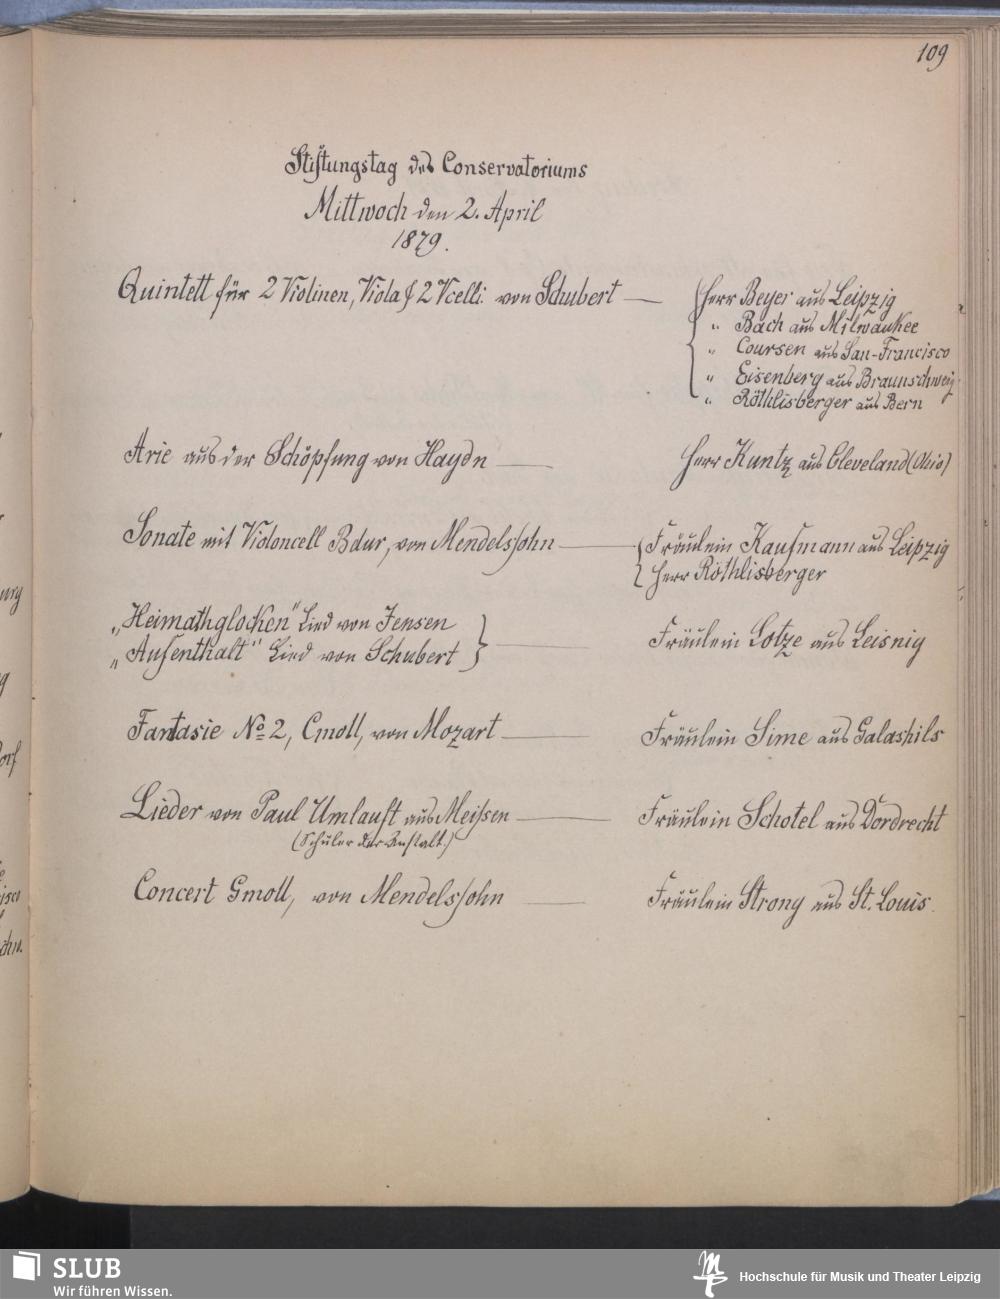 109
Stiftungstag des Conservatoriums
Mittwoch den 2. April
1879.
Quintett für 2 Violinen, Viola & 2 Vcelli. von Schubert — Herr Beyer aus Leipzig
" Bach aus Milwaukee
" Coursen aus San-Francisco
" Eisenberg aus Braunschweig
" Röthlisberger aus Bern
Arie aus der Schöpfung von Haydn — Herr Kuntz aus Cleveland (Ohio)
Sonate mit Violoncell Bdur, von Mendelssohn — Fräulein Kaufmann aus Leipzig
Herr Röthlisberger
„Heimathglocken" Lied von Jensen
„Aufenthalt" Lied von Schubert — Fräulein Lotze aus Leisnig
Fantasie No 2, Cmoll, von Mozart — Fräulein Sime aus Galashils
Lieder von Paul Umlauft aus Meissen — Fräulein Schotel aus Dordrecht
(Schüler der Anstalt.)
Concert Gmoll, von Mendelssohn — Fräulein Strong aus St. Louis.
SLUB
Wir führen Wissen.
Hochschule für Musik und Theater Leipzig